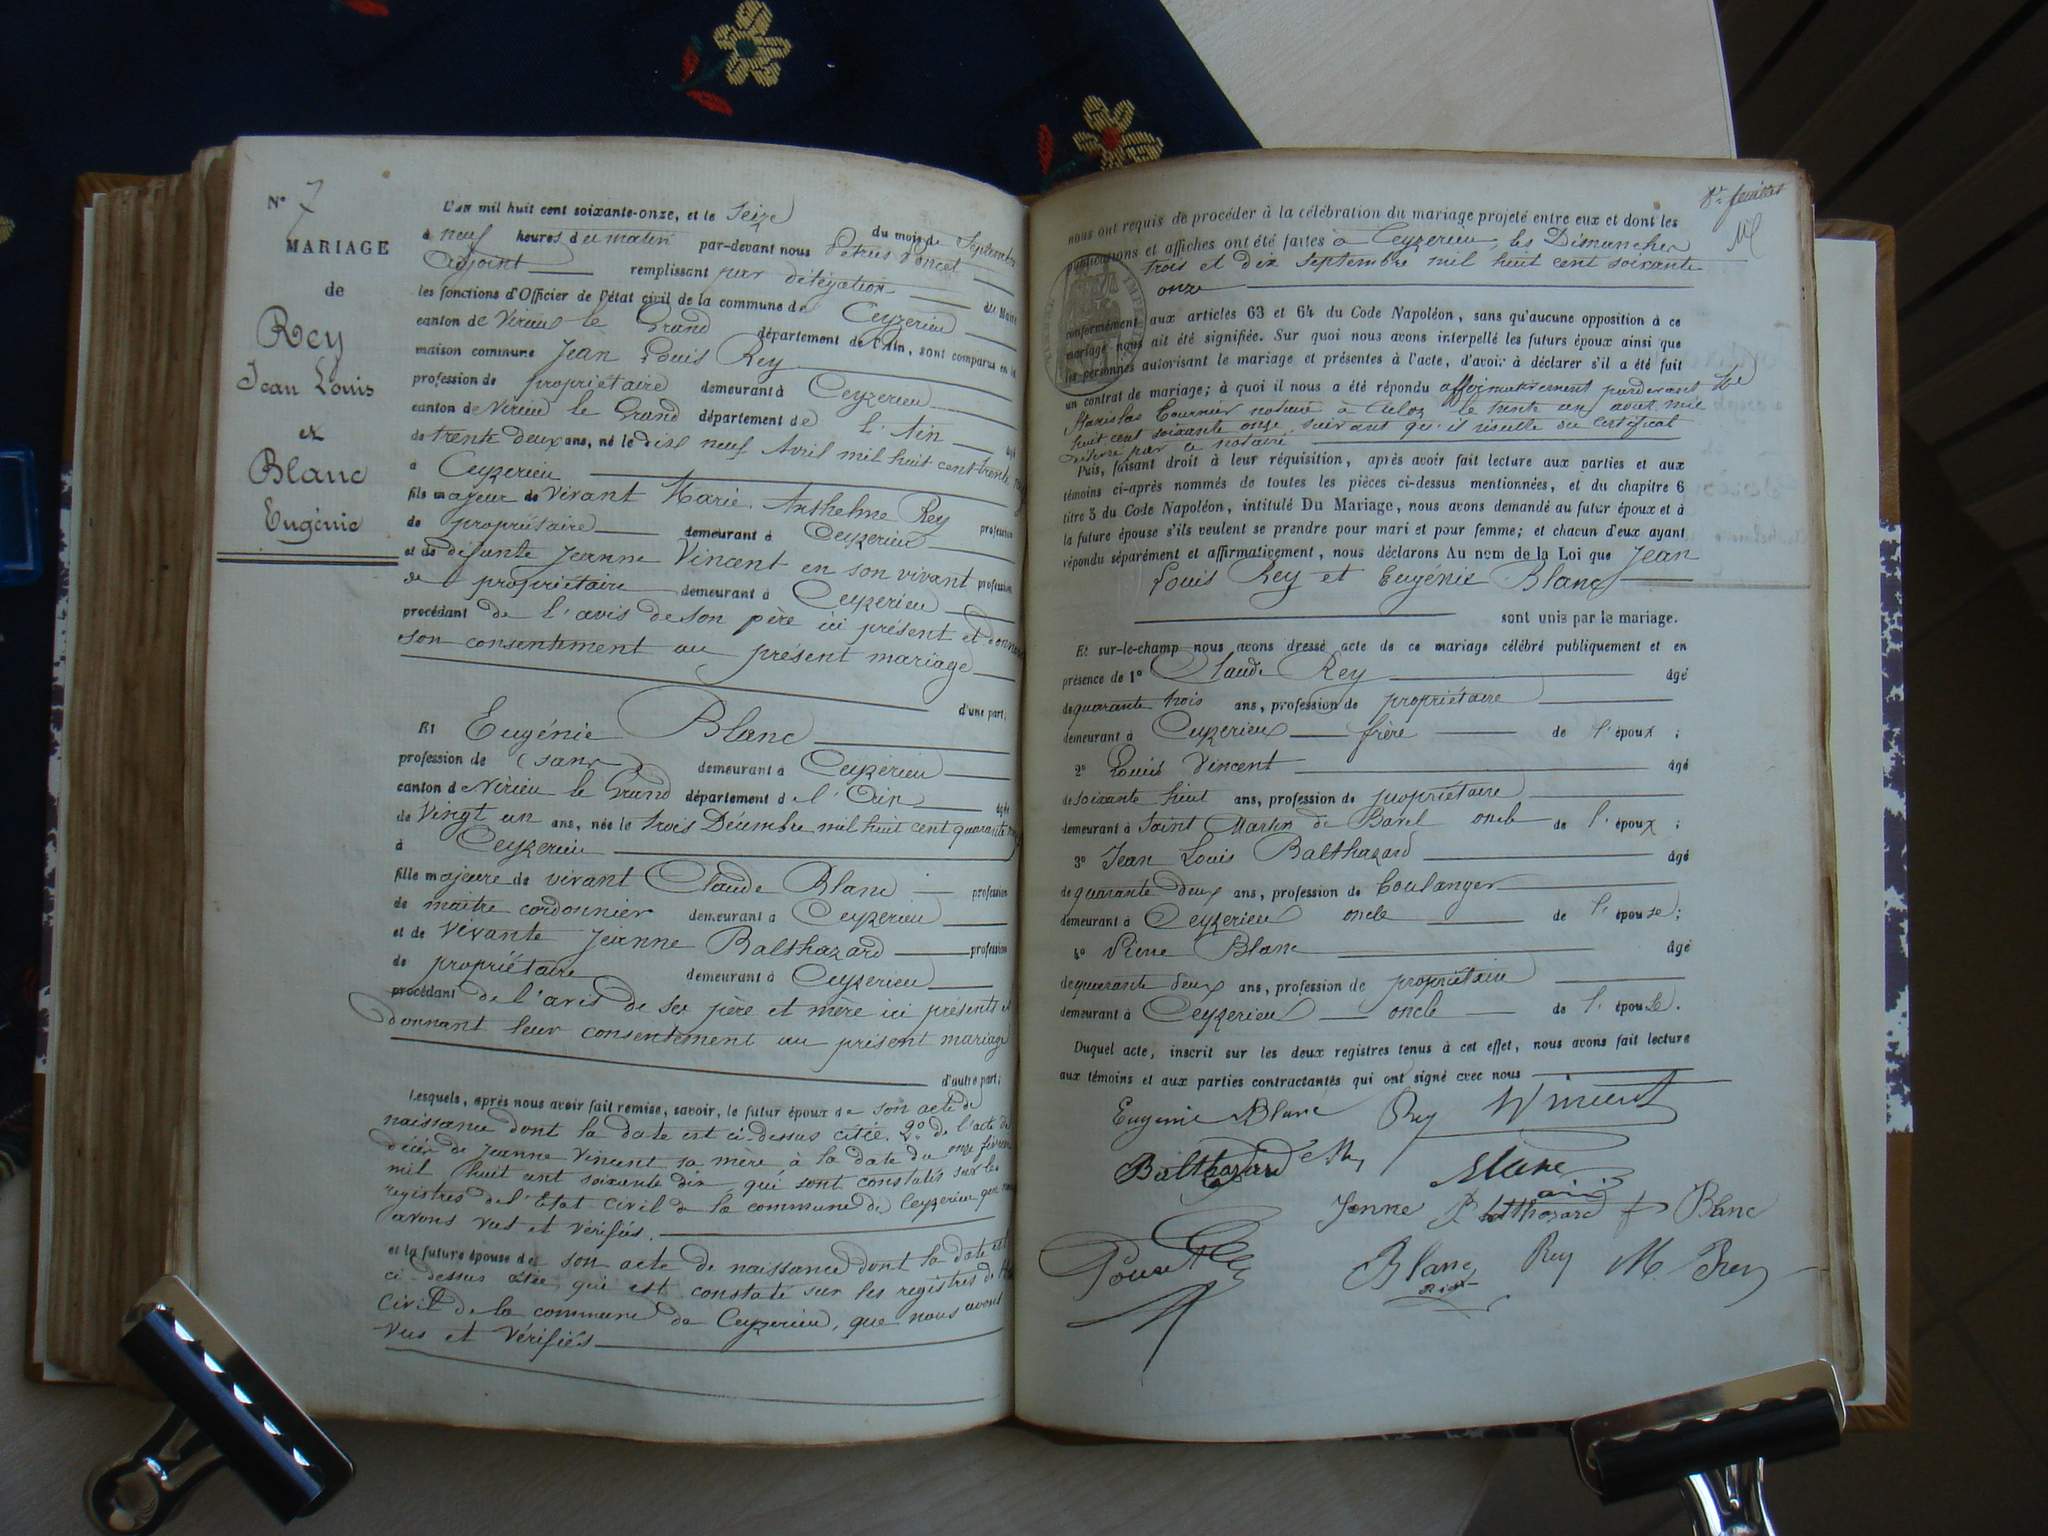 N° 7
MARIAGE
de
Rey
Jean Louis
et
Blanc
Eugénie
L'an mil huit cent soixante-onze, et le Seize
du mois de Septembre
à neuf heures du matin par-devant nous Pétrus Poncet
adjoint remplissant par délégation du Maire
les fonctions d'Officier de l'état civil de la commune de Ceyzerieu
canton de Virieu le Grand département de l'Ain, sont comparus en la
maison commune Jean Louis Rey
profession de propriétaire demeurant à Ceyzerieu
canton de Virieu le Grand département de l'Ain âgé
de trente deux ans, né le dix neuf Avril mil huit cent trente neuf
à Ceyzerieu
fils majeur de vivant Marie Anthelme Rey profession
de propriétaire demeurant à Ceyzerieu
et de défunte Jeanne Vincent en son vivant profession
de propriétaire demeurant à Ceyzerieu
procédant de l'avis de son père ici présent et donnant
son consentement au présent mariage
d'une part;
Et Eugénie Blanc
profession de (sans) demeurant à Ceyzerieu
canton de Virieu le Grand département de l'Ain âgée
de Vingt un ans, née le trois Décembre mil huit cent quarante neuf
à Ceyzerieu
fille majeure de vivant Claude Blanc profession
de maitre cordonnier demeurant à Ceyzerieu
et de vivante Jeanne Balthazard profession
de propriétaire demeurant à Ceyzerieu
procédant de l'avis de ses père et mère ici présents et
donnant leur consentement au présent mariage
d'autre part;
Lesquels, après nous avoir fait remise, savoir, le futur époux de son acte de
naissance dont la date est ci-dessus citée. 2° de l'acte de
décès de Jeanne Vincent sa mère à la date du onze février
mil huit cent soixante dix, qui sont constatés sur les
registres de l'Etat civil de la commune de Ceyzerieu que nous
avons vus et vérifiés.
et la future épouse de son acte de naissance dont la date est
ci-dessus citée, qui est constaté sur les registres de l'Etat
Civil de la commune de Ceyzerieu, que nous avons
vus et vérifiés
8e feuillet
nous ont requis de procéder à la célébration du mariage projeté entre eux et dont les
publications et affiches ont été faites à Ceyzerieu, les Dimanches
trois et dix septembre mil huit cent soixante
onze
conformément aux articles 63 et 64 du Code Napoléon, sans qu'aucune opposition à ce
mariage nous ait été signifiée. Sur quoi nous avons interpellé les futurs époux ainsi que
les personnes autorisant le mariage et présentes à l'acte, d'avoir à déclarer s'il a été fait
un contrat de mariage; à quoi il nous a été répondu affirmativement pardevant Me
Stanislas Tournier notaire à Culoz le trente un août mil
huit cent soixante onze, suivant qu'il résulte du certificat
délivré par le notaire
Puis, faisant droit à leur réquisition, après avoir fait lecture aux parties et aux
témoins ci-après nommés de toutes les pièces ci-dessus mentionnées, et du chapitre 6
titre 5 du Code Napoléon, intitulé Du Mariage, nous avons demandé au futur époux et à
la future épouse s'ils veulent se prendre pour mari et pour femme; et chacun d'eux ayant
répondu séparément et affirmativement, nous déclarons Au nom de la Loi que Jean
Louis Rey et Eugénie Blanc
sont unis par le mariage.
Et sur-le-champ nous avons dressé acte de ce mariage célébré publiquement et en
présence de 1° Claude Rey âgé
de quarante trois ans, profession de propriétaire
demeurant à Ceyzerieu frère de l'époux;
2° Louis Vincent âgé
de soixante huit ans, profession de propriétaire
demeurant à Saint Martin de Bavel oncle de l'époux;
3° Jean Louis Balthazard âgé
de quarante deux ans, profession de boulanger
demeurant à Ceyzerieu oncle de l'épouse;
4° Blanc âgé
de quarante deux ans, profession de propriétaire
demeurant à Ceyzerieu oncle de l'épouse.
Duquel acte, inscrit sur les deux registres tenus à cet effet, nous avons fait lecture
aux témoins et aux parties contractantes qui ont signé avec nous
Eugenie Blanc Rey Vincent
Balthazard Blanc
Jenne Balthazard f Blanc
Blanc Rey M. Rey